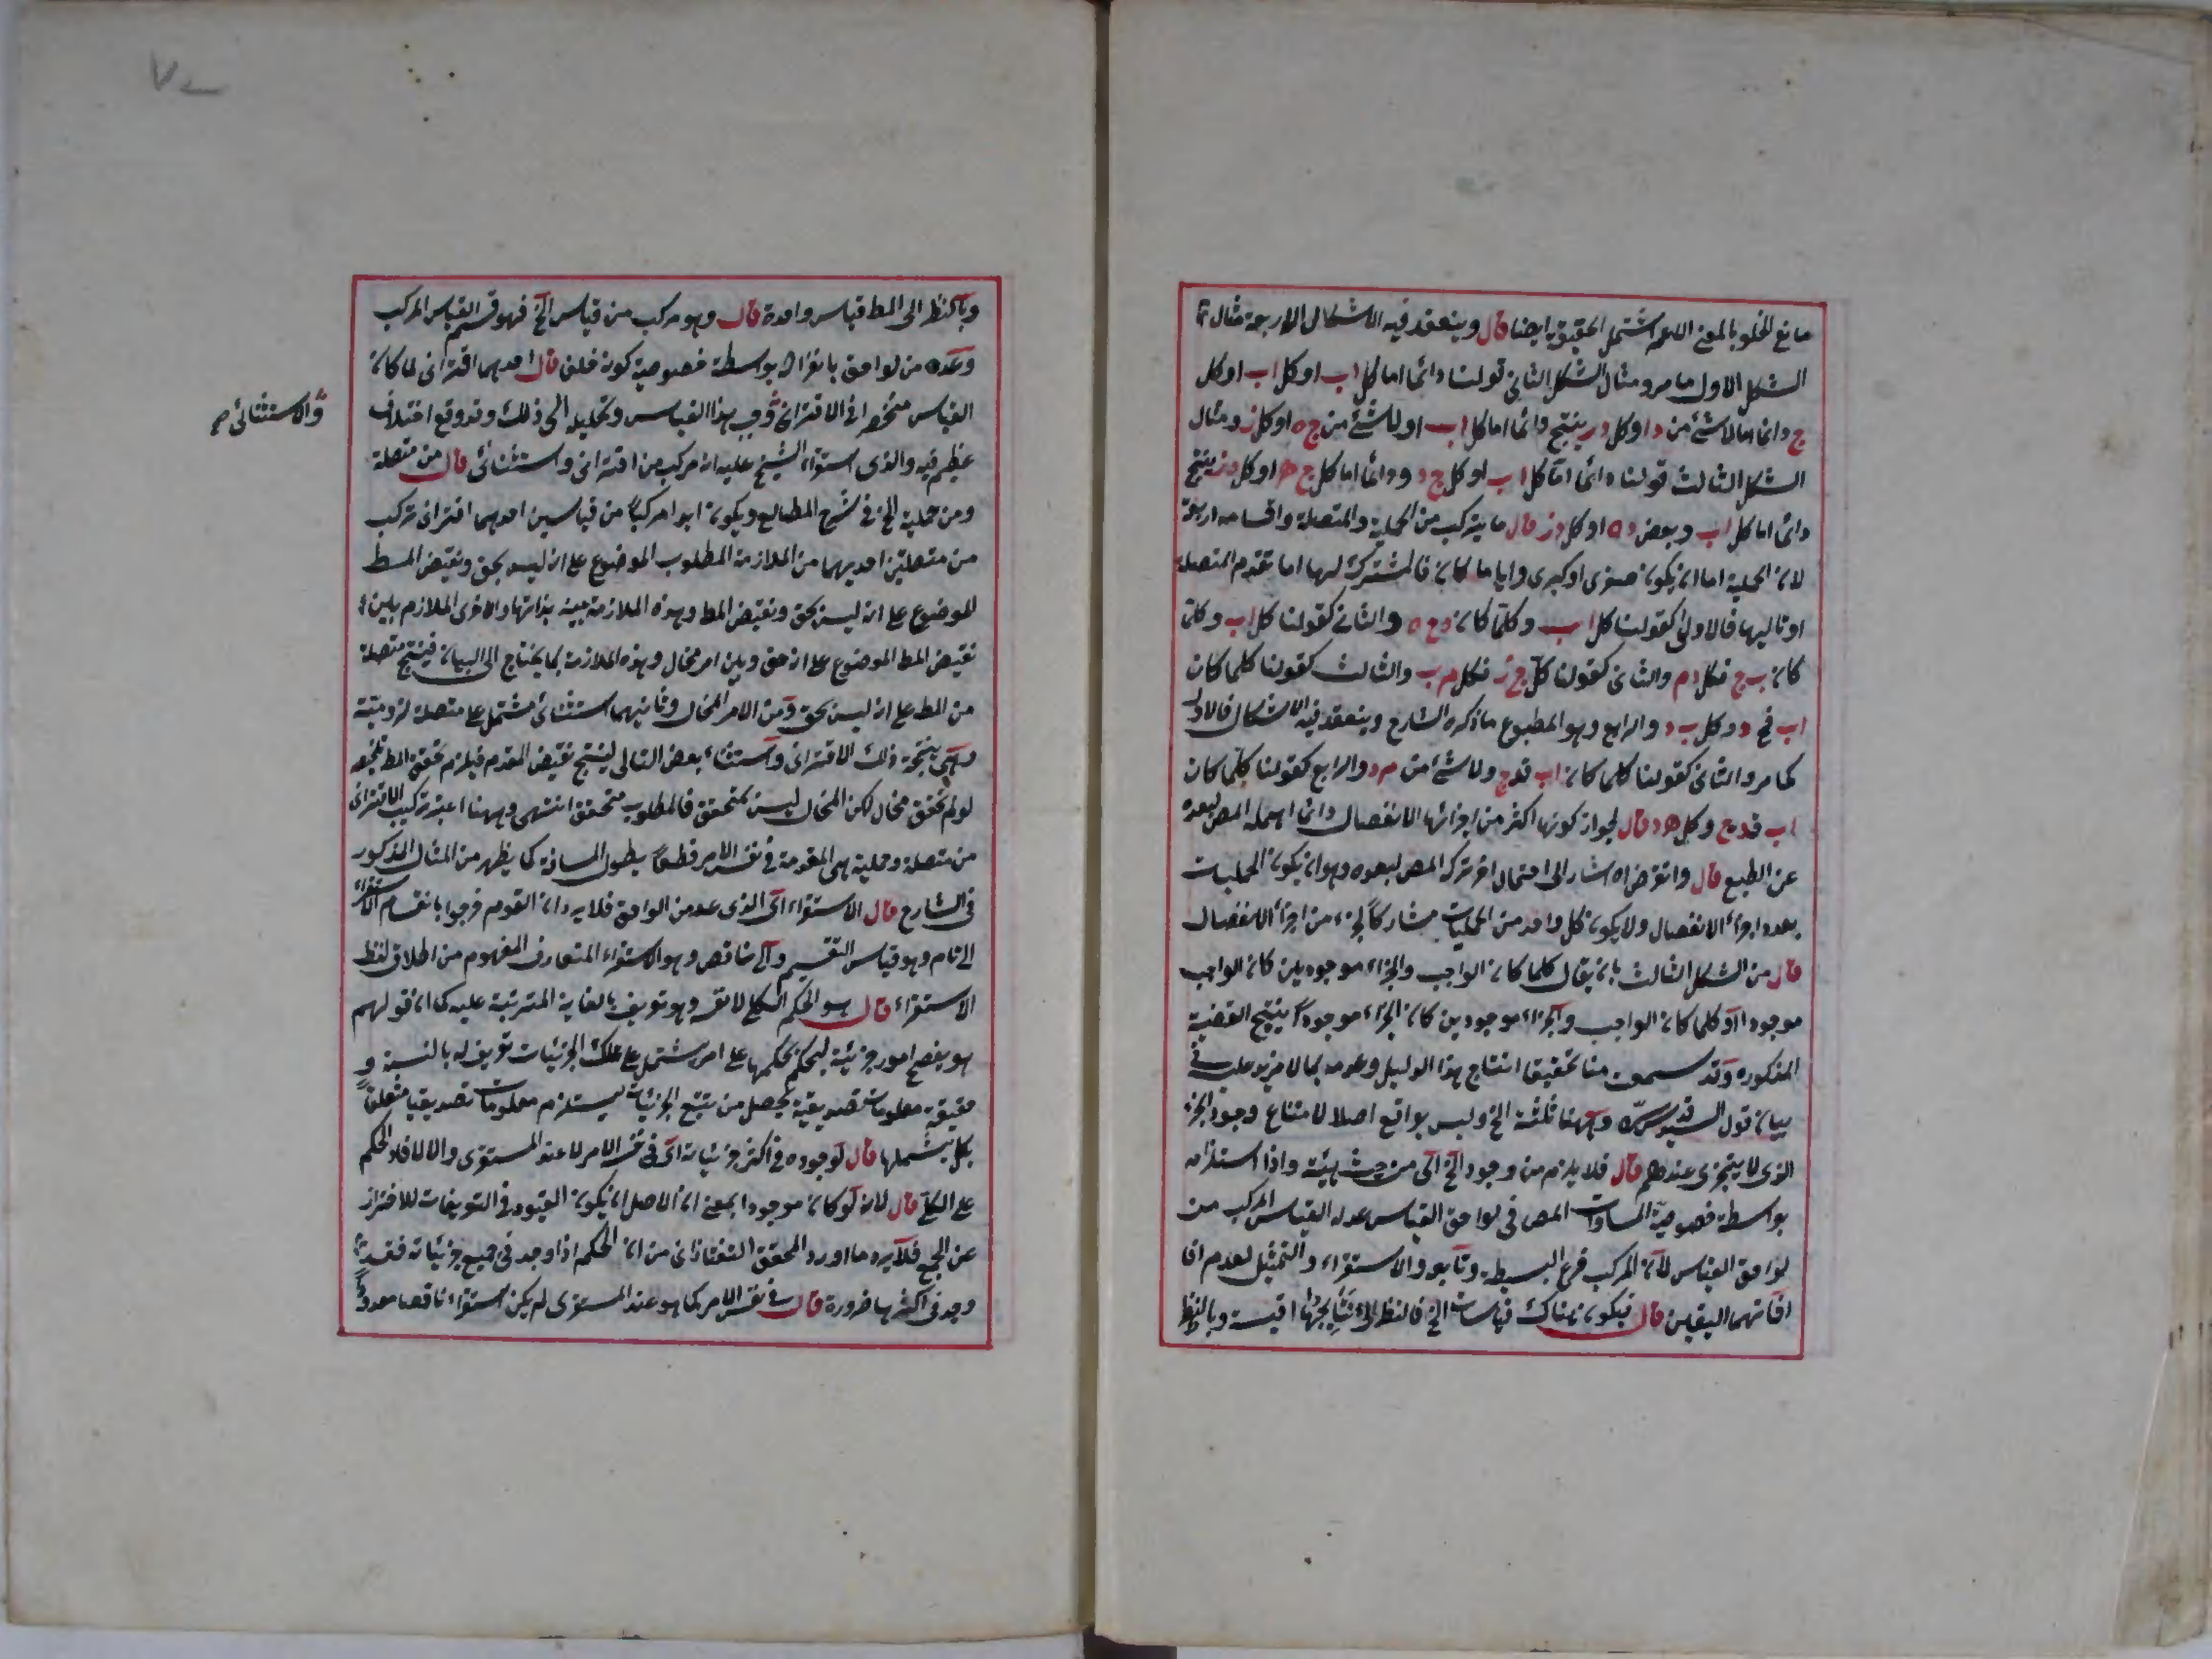 مانع الخلو بالمعنى الاعم اشتمل الحقيقية ايضا قال وينعقد فيه الاشكال الاربعة مثال
الشكل الاول ما مر ومثال الشكل الثانى قولنا دائما اما كل اب او كل اب او كل
ج دائما اما لا شئ من دا او كل در ينتج دائما اما كل اب او لا شئ من ج ه او كل ز ومثال
الشكل الثالث قولنا دائما اما كل اب او كل ج د ودائما اما كل ج ه او كل در ينتج
دائما اما كل اب وبعض ده او كل در قال ما يتركب من الحملية والمتصلة واقسامه اربعة
لان الحملية اما ان يكون صغرى او كبرى وايا ما كان فالمشترك لها اما مقدم المتصلة
او تاليها فالاول كقولنا كل اب وكلما كان دج ه والثانى كقولنا كل اب وكلما
كان ب ج فكل دم والثانى كقولنا كل ج ز فكل م ب والثالث كقولنا كلما كان
اب فج د وكل ب د والرابع وهو المطبوع ما ذكره الشارح وينعقد فيه الاشكال فالاول
كما مر والثانى كقولنا كلما كان اب قدج ولا شئ من مرد والرابع كقولنا كلما كان
اب قدج وكل هد قال لجواز كونها اكثر من اجزائها الانفصال دائما اهمله المص لبعده
عن الطبع قال وانقرضاه اشار الى احتمال اخر تركه المص لبعده وهو ان يكون الحمليات
بعدد اجزاء الانفصال ولا يكون كل واحد من الحمليات مشاركا لجزء من اجزاء الانفصال
قال من الشكل الثالث بان يقال كلما كان الواجب والجزء موجودين كان الواجب
موجودا او كلما كان الواجب والجزء موجودين كان الجزء موجودا ينتج القضية
المذكورة وقد سمعت منا تحقيقا انتاج هذا الدليل وعدمه بما لا مزيد عليه فى
بيان قول السيد قدس سره وههنا ثلثة الخ وليس بواقع اصلا لامتناع وجود الجزء
الذى لا يتجزى عندهم قال فلا يلزم من وجود الخ اى من حيث هيئة واذا استلزامه
بواسطة خصوصية المساوات المص فى لواحق القياس عدله القياس المركب من
لواحق القياس لان المركب فرع البسيطة وتابعه والاستقراء والتمثيل لعدم افا
افادتهما اليقين قال فيكون هناك قياسات الخ فالنظر الى نتايجها اقيسة وبالنظر
وبالنظر الى المط قياس واحدة قال وهو مركب من قياس الخ فهو قسم القياس المركب
وعده من لواحق بانفراده بواسطة خصوصية كونه خلف قال احدهما اقترانى لما كان
القياس منحصرا فى الاقترانى وفى هذا القياس وتحليله الى ذلك وقد وقع اختلاف
والاستثنائى صح
عظيم فيه والذى استقراء الشيخ عليه انه مركب من اقترانى واستثنائى قال من متصلة
ومن حملية الخ فى شرح المطالع ويكون ابدا مركبا من قياسين احدهما اقترانى مركب
من متصلتين احديهما من الملازمة المطلوب الموضوع على انه ليس بحق ونقيض المط
الموضوع على انه ليس بحق ونقيض المط وهذه الملازمة بينة بذاتها والاخرى الملازم بين
نقيض المط الموضوع على انه حق وبين امر محال وهذه الملازمة بما يحتاج الى البيان فينتج متصلة
من المط على انه ليس بحق ومن الامر المحال وثانيهما استثنائى مشتمل على متصلة لزومية
وهى نتيجة ذلك الاقترانى واستثناء بعض التالى لينتج نقيض المقدم فيلزم تحقق المط تلخيصه
لو لم تحقق محال لكن المحال ليس بمتحقق فالمطلوب متحقق انتهى وههنا اعتبر تركيب الاقترانى
من متصلة وحملية هى المقدمة فى نفس الامر قطعا بطول المسافة كما يظهر من المثال المذكور
فى الشارح قال الاستقراء اى الذى عد من اللواحق فلا يرد ان القوم فرحوا بانقسام الاستقراء
الى تام وهو قياس التقسيم والى ناقص وهو الاستقراء المتعارف المفهوم من اطلاق لفظ
الاستقراء قال هو الحكم الكلى لا نفسه وهو تعريف بالغاية المترتبة عليه كما ان قولهم
هو تفصح امور جزئية ليحكم بحكمها على امر يشتمل على تلك الجزئيات تعريف له بالنسبة و
حقيقة معلومات تصديقية تحصل من تتبع الجزئيات ليستلزم معلومات تصديقيا متعلقا
بكل يشملها قال لوجوده فى اكثر جزئياته اى فى نفس الامر لا عند المستقرى والا لافاد الحكم
على الكل قال لانه لو كان موجودا بمعنى ان الاصل ان يكون القيود فى التعريفات للاحتراز
عن الجمع فلا يرد ما اورد المحقق التفتازانى من ان الحكم اذا وجد فى جميع جزئياته فقد
وجد فى اكثرها ضرورة قال فى نفس الامر كما هو عند المستقرى لم يكن استقراء ناقصا معدودا